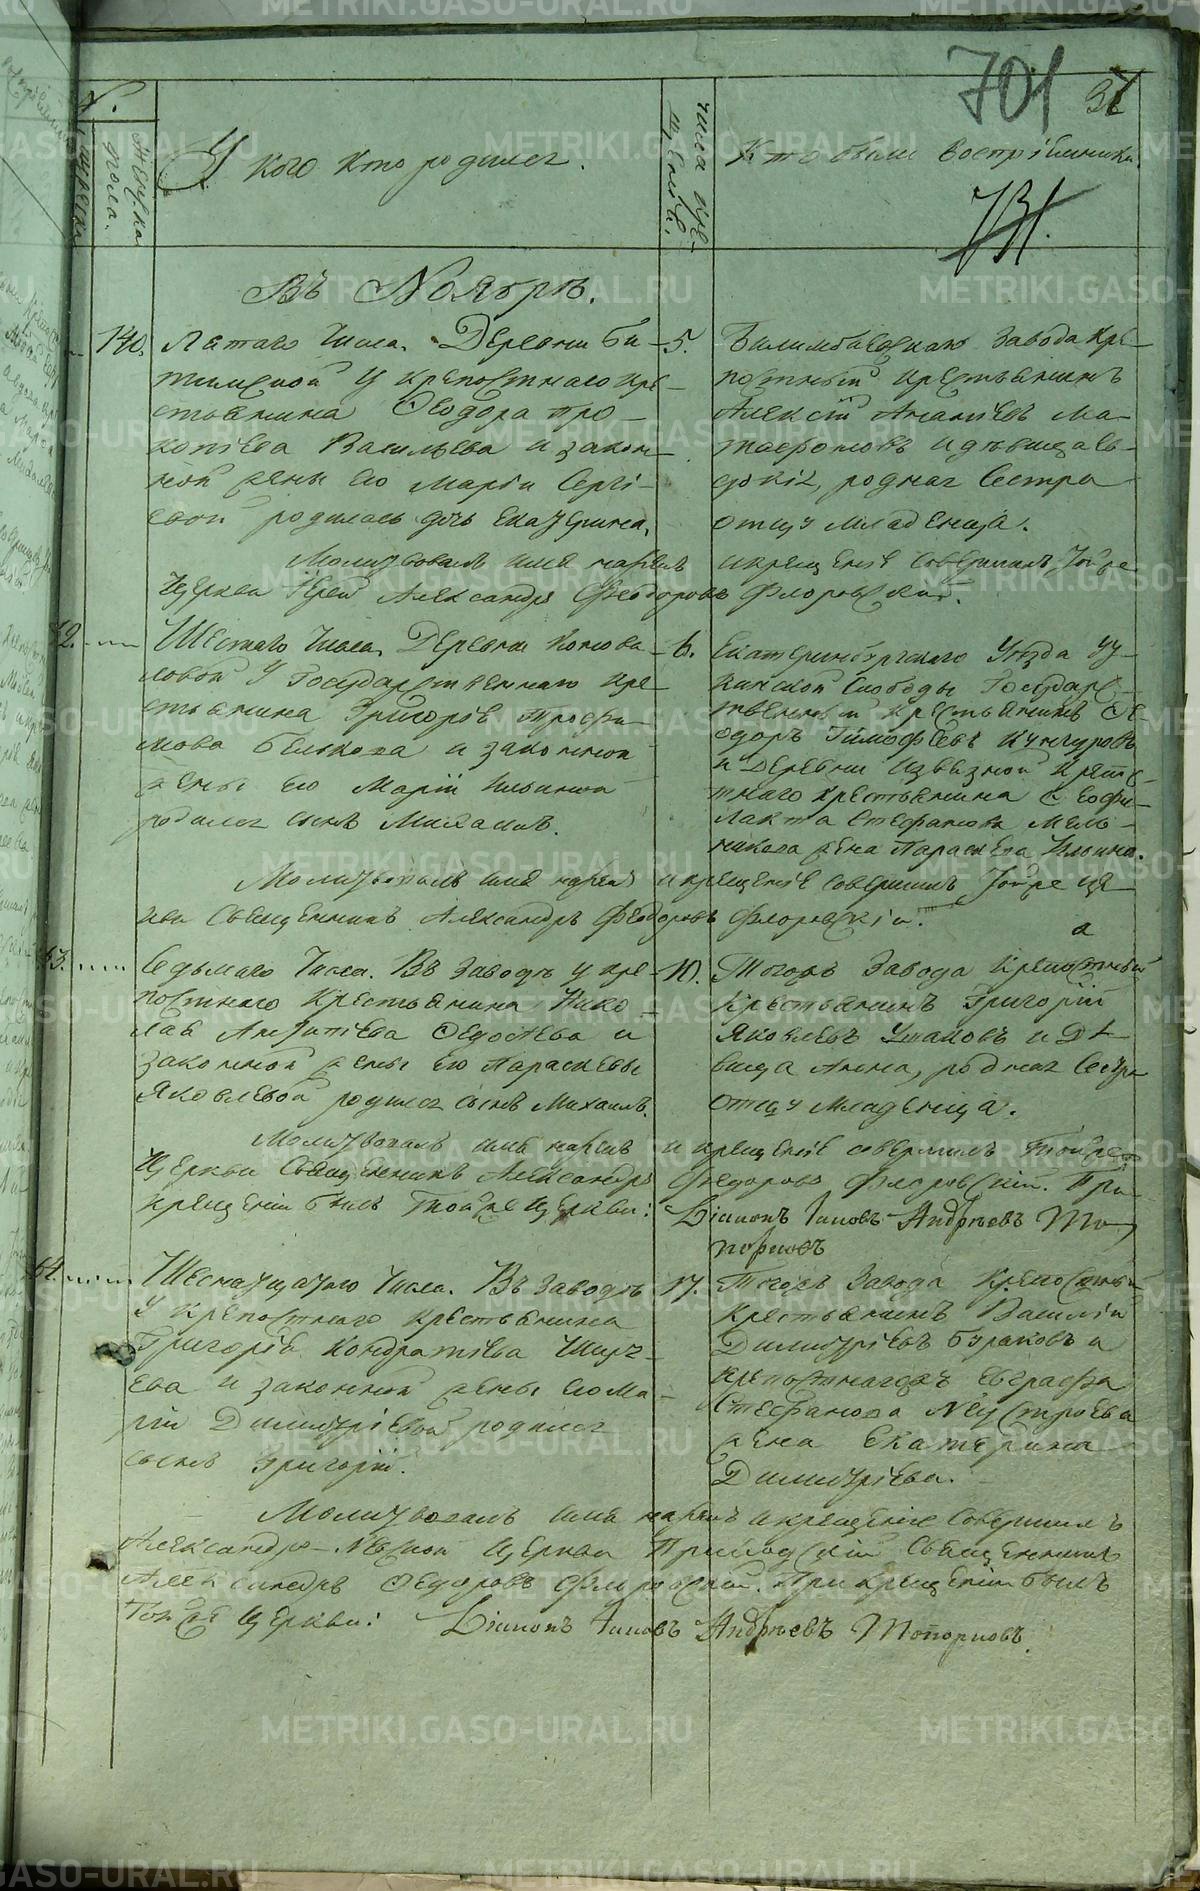 701
31
№.
Мужска
Женска
пола.
У кого кто родился.
числа кре-
щенія.
Кто были восприѣмники.
731.
Въ Ноябрѣ.
140.
Пятаго Числа. Деревни Би-
тимской у крепостнаго кре-
стьянина Ѳеодора Про-
копіева Васильева и закон-
ной жены его Маріи Сергі-
евой родилась дочь Екатерина.
5.
Билимбаевскаго завода кре-
постный крестьянинъ
Алексій Ананіевъ Ма-
и дѣвица Ев-
докія, родная Сестра
отцу младенца.
Молитвовалъ имя нареклъ и крещеніе совершилъ Тойже
Церкви Іерей Александръ Феодоровъ Флоровскій.
62.
Шестаго Числа. Деревни Конова-
ловой у Государственнаго кре-
стьянина Григорія Трофи-
мова Белькова и законной
жены его Маріи Ильиной
родился сынъ Михаилъ.
6.
Екатеринбургскаго Уѣзда Ут-
кинской Слободы Государс-
твенный крестьянинъ Ѳе-
одоръ Тимофѣевъ Кунгуровъ
и Деревни Извѣзной крепос-
тнаго крестьянина Ѳеофи-
лакта Стефанова Мель-
никова жена Параскева Ильина.
Молитвовалъ имя нареклъ и крещеніе совершилъ Тойже це-
ркви Священникъ Александръ Феодоровъ Флоровскій.
63.
Седьмаго Числа. Въ Заводѣ у кре-
постнаго Крестьянина Нико-
лая Антипіева Ѳедотьева и
законной жены его Параскевы
Яковлевой родился сынъ Михаилъ.
10.
Тогожъ Завода Крепостный
Крестьянинъ Григорій
Яковлевъ Ушаковъ и Дѣ-
вица Анна, родная Сестра
отцу младенца.
Молитвовалъ имя нареклъ и крещеніе совершилъ Тойже
Церкви Священникъ Александръ Ѳедоровъ Флоровскій. При
крещеніи былъ Тойже Церкви: Діаконъ Іаковъ Андреевъ То-
порковъ
64.
Шеснатцатого Числа. Въ Заводѣ
У Крепостнаго Крестьянина
Григорія Кондратіева Шир-
ева и законной жены его Ма-
ріи Димитріевой родился
сынъ Григорій.
17.
Тогожъ Завода Крепостный
Крестьянинъ Василій
Димитріевъ Бураковъ и
крепостнагожъ Евграфа
Стефанова Неустроева
жена Екатерина
Димитріева.
Молитвовалъ имя нареклъ и крещеніе совершилъ
Александро-Невской Церкви Приходскій Священникъ
Александръ Ѳедоровъ Флоровскій. При крещеніи былъ
Тойже Церкви: Діаконъ Іаковъ Андреевъ Топорковъ.
METRIKI.GASO-URAL.RU